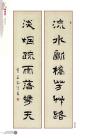 流水斷橋芳艸路
淡烟疏雨落花天